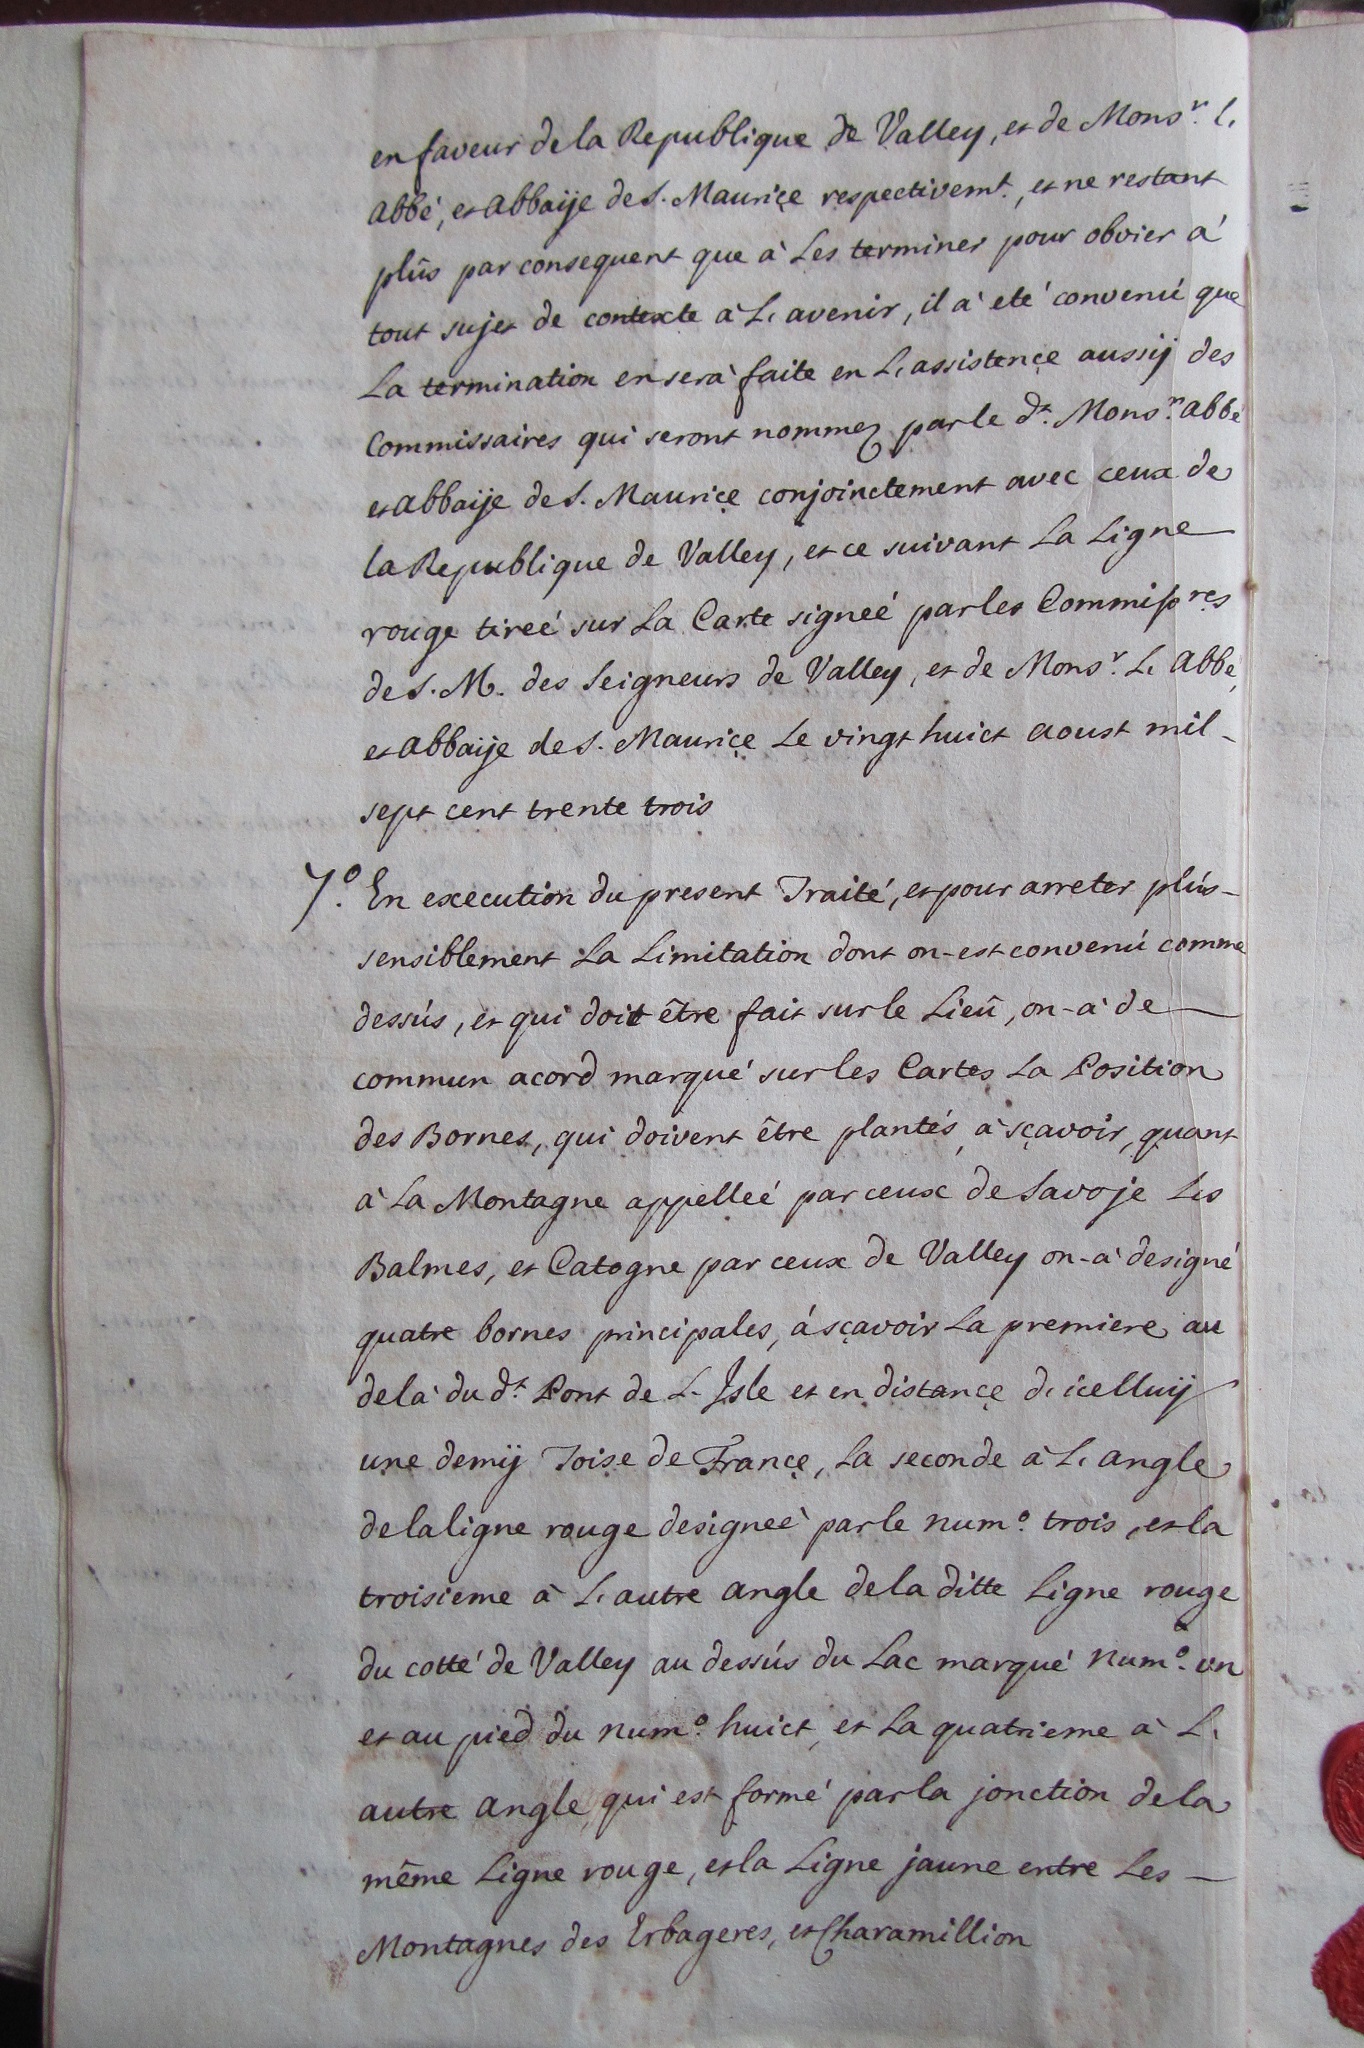 en faveur de la Republique de Valley, et de Mons.r L'
Abbé, et Abbaije de S. Mauriçe respectivemt., et ne restant
plûs par consequent que à Les terminer pour obvier à
tout sujet de contexte à L'avenir, il à eté convenú que
La termination en serà faite en L'assistençe aussij des
Commissaires qui seront nommez par le dt. Mons.r Abbé
et Abbaije de S. Mauriçe conjoinctement avec ceux de
la Republique de Valley, et ce suivant La Ligne
rouge tireé sur La Carte signeé par les Commiss.res
de S. M. des Seigneurs de Valley, et de Mons.r L'Abbé,
et Abbaije de S. Mauriçe Le vingt huict Aoust mil-
sept cent trente trois
7.o En execution du present Traité, et pour arreter plús-
sensiblement La Limitation dont on-est convenú comme
dessús, et qui doit être fait sur le Lieû, on-à de
commun acord marqué sur les Cartes La Position
des Bornes, qui doivent être plantés, à sçavoir, quant
à La Montagne appelleé par ceux de Savoje Les
Balmes, et Catogne par ceux de Valley on-à designé
quatre bornes principales, ásçavoir La premiere au
delà du dt. Pont de L'Isle et en distançe d'icelluij
une demij Toise de Françe, La seconde à L'angle
de la ligne rouge designeè par le num.o trois, et la
troisieme à L'autre angle de la ditte Ligne rouge
du cotté de Valley au dessús du Lac marqué Num.o un
et au pied du num.o huict, et La quatrieme à L'
autre angle, qui est formé par la jonction de la
même Ligne rouge, et la Ligne jaune entre Les
Montagnes des Erbageres, et Charamillion